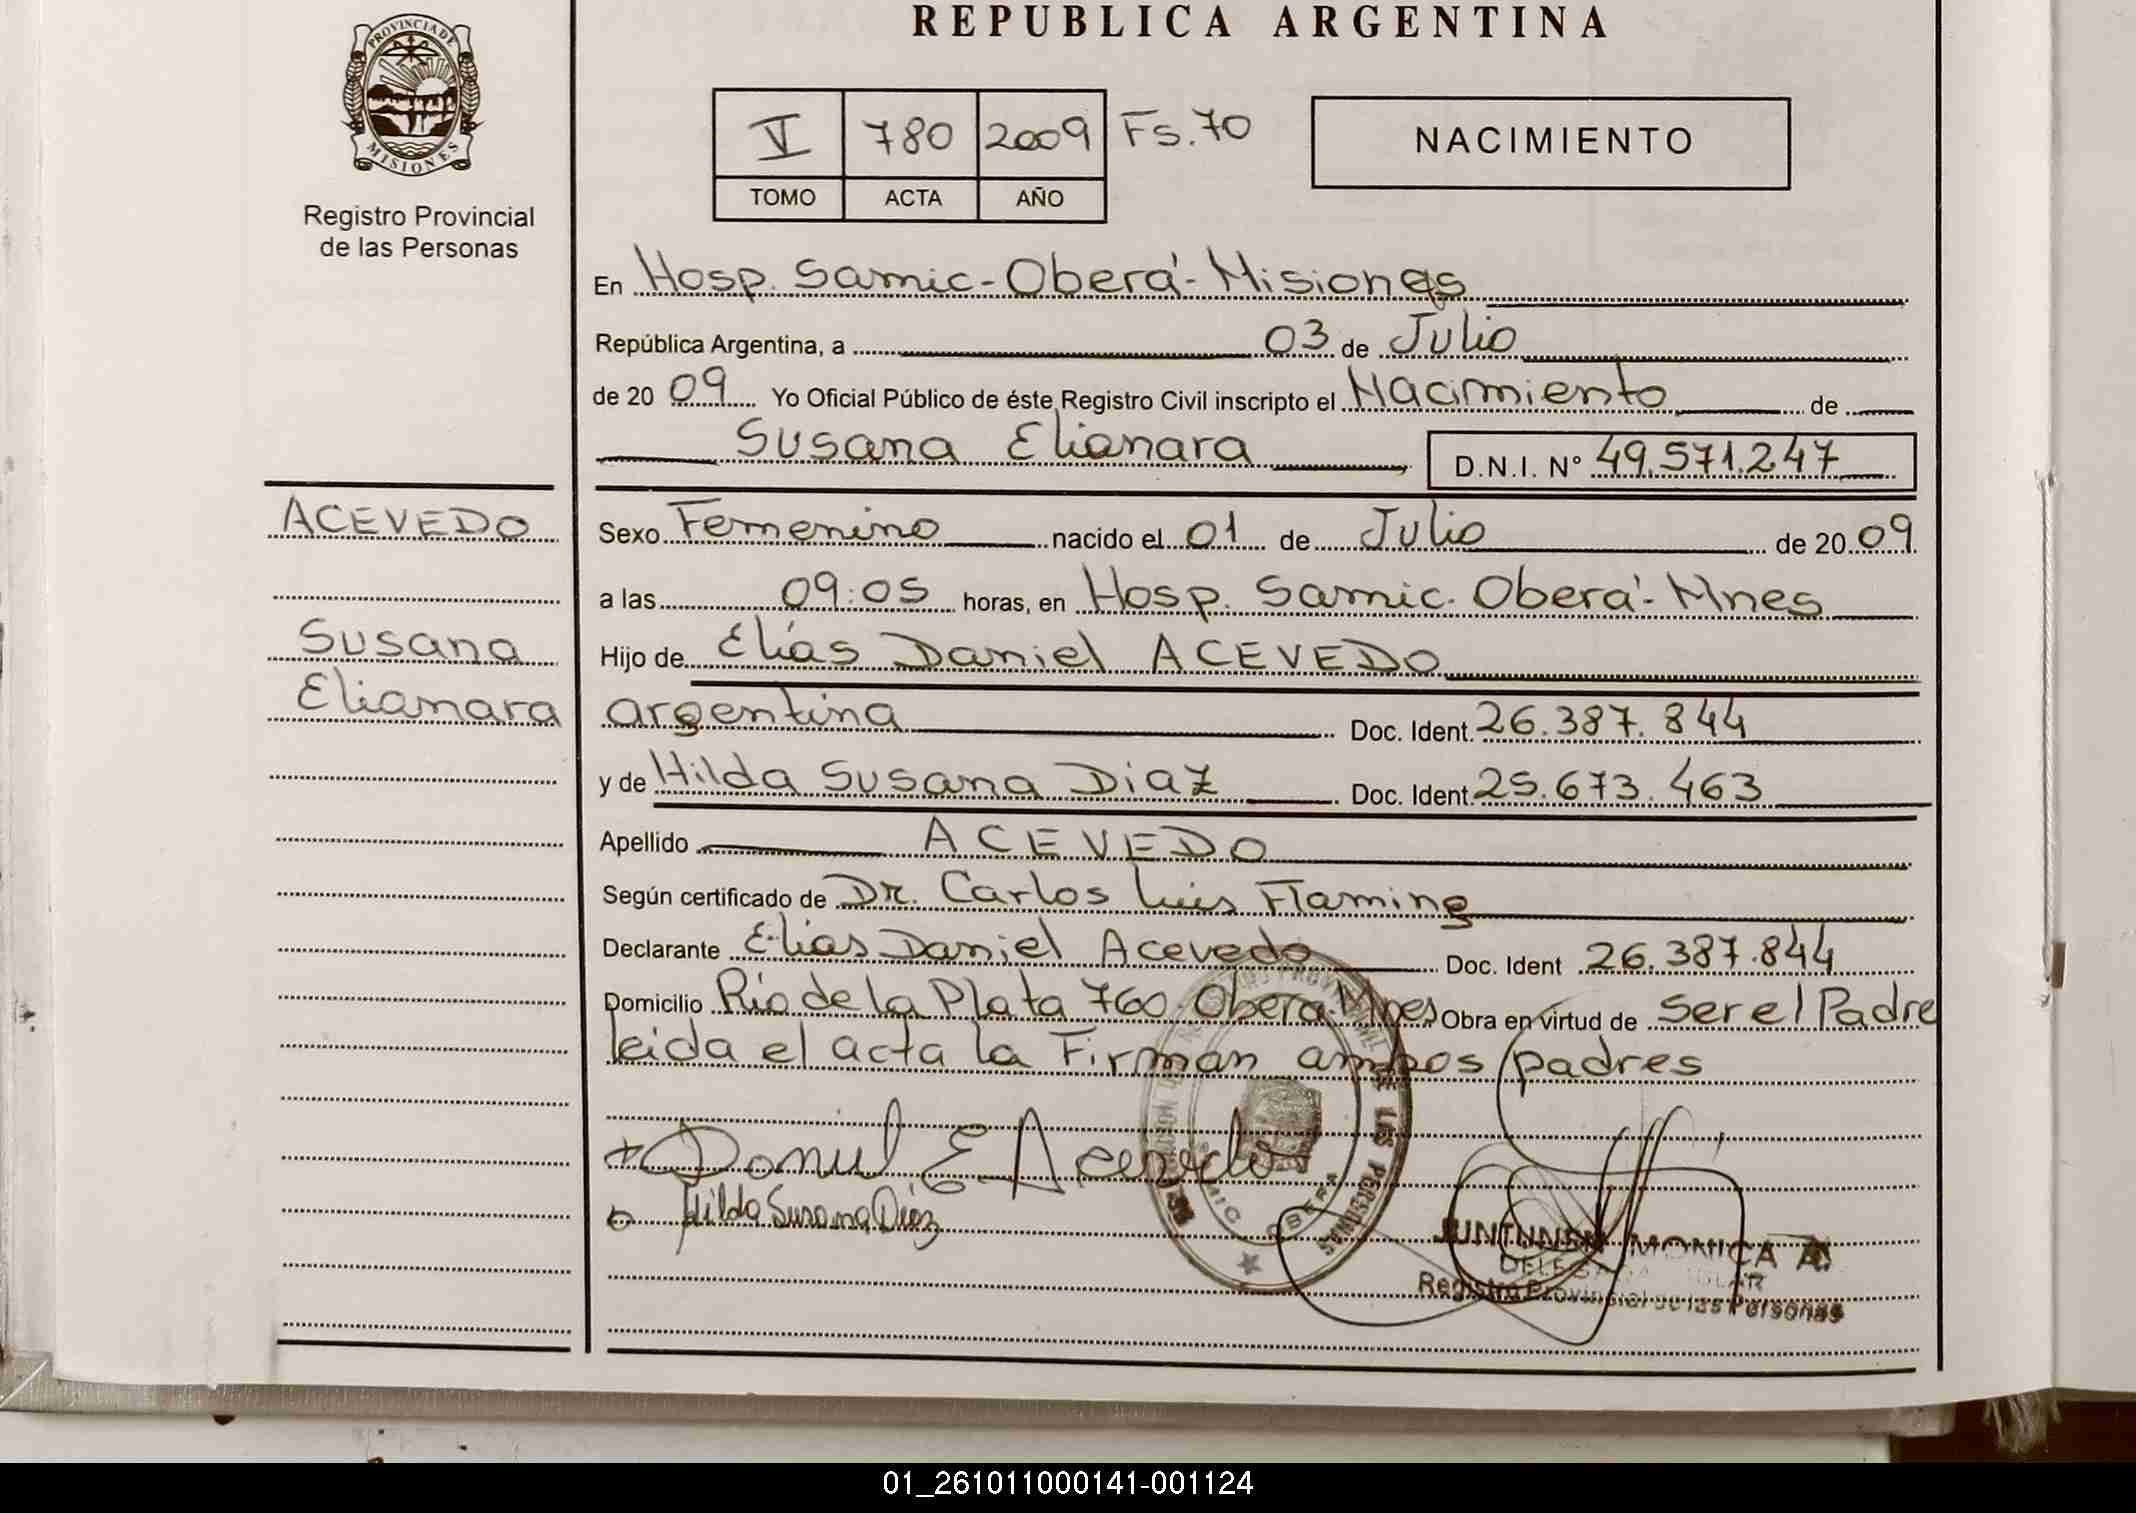 REPUBLICA ARGENTINA
PROVINCIA DE
MISIONES
Registro Provincial
de las Personas
V 780 2009 Fs. 70
TOMO ACTA AÑO
NACIMIENTO
En Hosp. Samic - Oberá - Misiones
República Argentina, a 03 de Julio
de 20 09 Yo Oficial Público de éste Registro Civil inscripto el Nacimiento de
Susana Elianara D.N.I. N° 49.571.247
ACEVEDO
Susana
Elianara
Sexo Femenino nacido el 01 de Julio de 20 09
a las 09:05 horas, en Hosp. Samic. Oberá - Mnes
Hijo de Elías Daniel ACEVEDO
argentina Doc. Ident. 26.387.844
y de Hilda Susana Diaz Doc. Ident. 25.673.463
Apellido ACEVEDO
Según certificado de Dr. Carlos Luis Flaming
Declarante Elias Daniel Acevedo Doc. Ident 26.387.844
Domicilio Río de la Plata 760 Obera Mnes Obra en virtud de Ser el Padre
leida el acta la Firman ambos padres
Daniel E Acevedo
Hilda Susana Diaz
DE LAS PERSONAS
OBERA
JUNTUNEN MONICA A.
Registro Provincial de las Personas
01_261011000141-001124